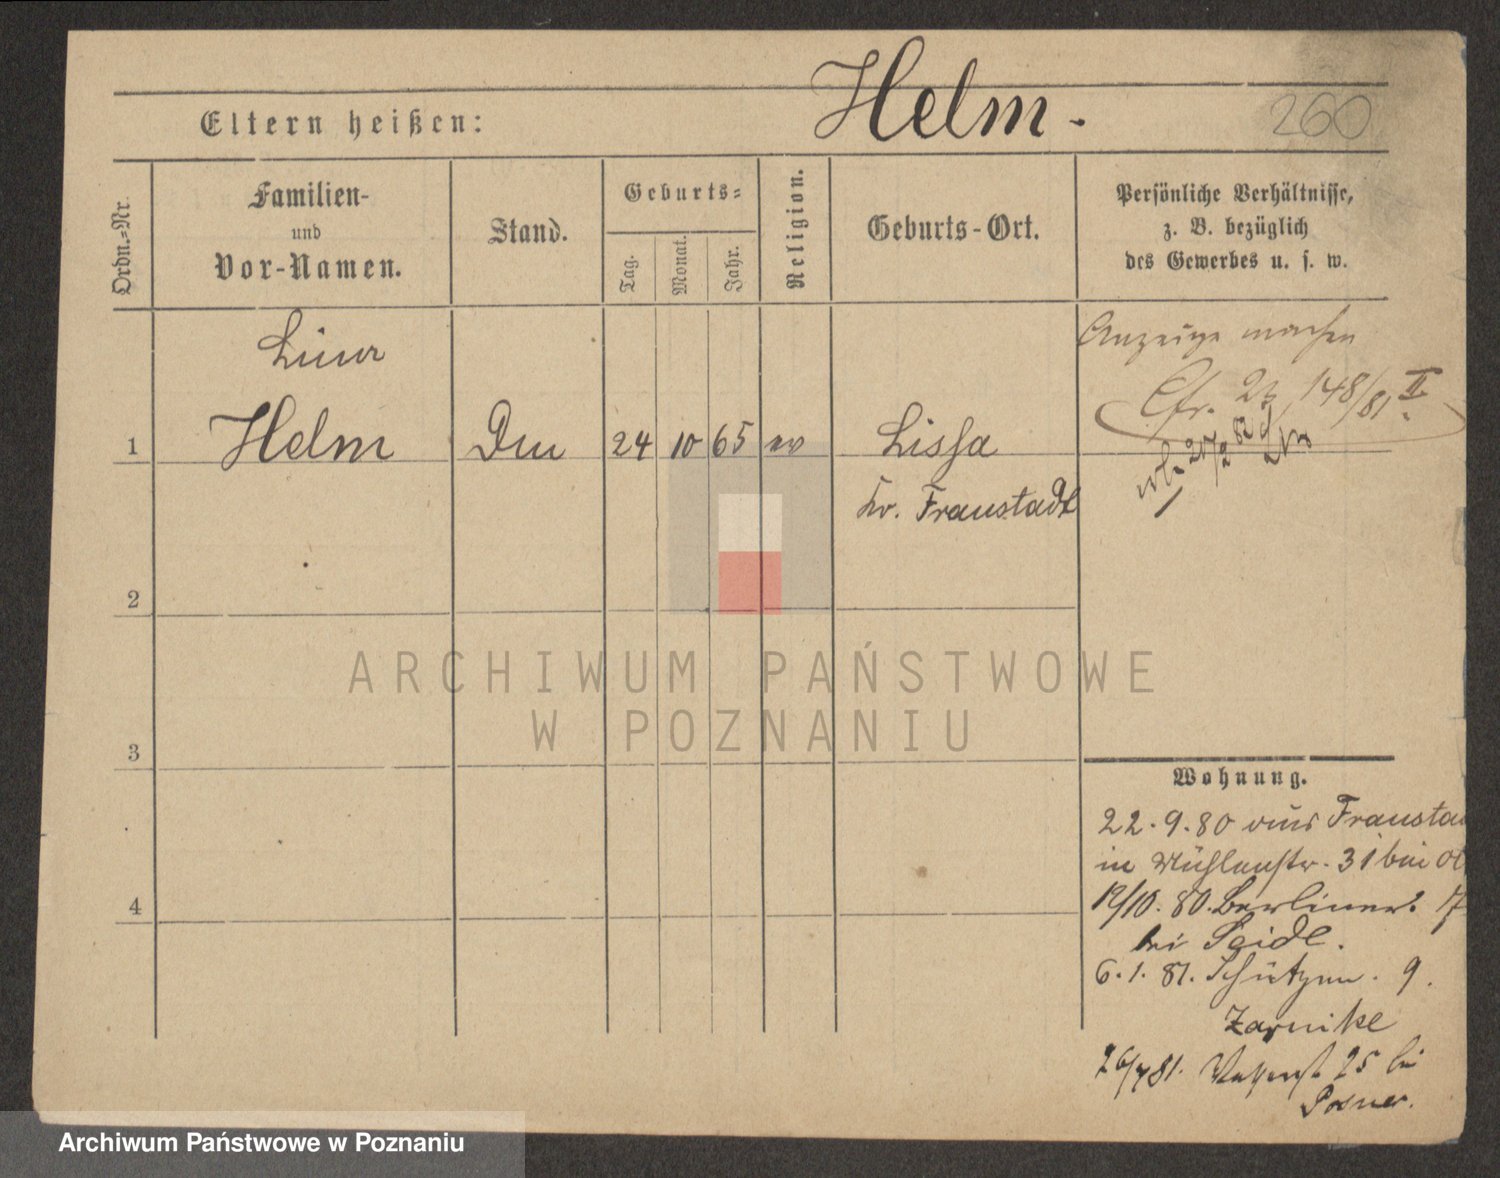 Helm.
260
Eltern heißen:
Ordn.-Nr.
Familien-
und
Vor-Namen.
Stand.
Geburts-
Tag.
Monat.
Jahr.
Religion.
Geburts-Ort.
Persönliche Verhältnisse,
z. B. bezüglich
des Gewerbes u. s. w.
Anzeige machen
Cfr. 148/81 II.
1
Helm
24
10
65
ev
Lissa
Kr. Fraustadt
2
3
4
ARCHIWUM PAŃSTWOWE
W POZNANIU
Wohnung.
22.9.80 aus
in Mühlenstr. 31 bei
19/10. 80. Berliner
bei Seidl.
6.1.81. Schützen. 9.
Zarnike
81. 25 bei
Posner.
Archiwum Państwowe w Poznaniu